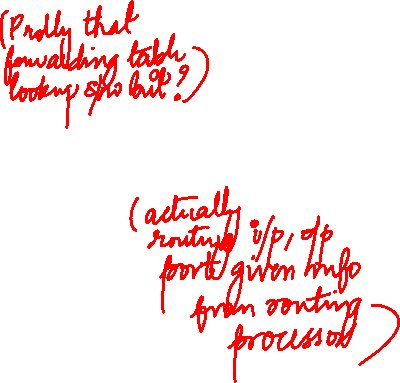 (Prolly that
forwarding table
lookup s/w bit?)
(actually
routing i/p, o/p
port given info
from routing
processor)